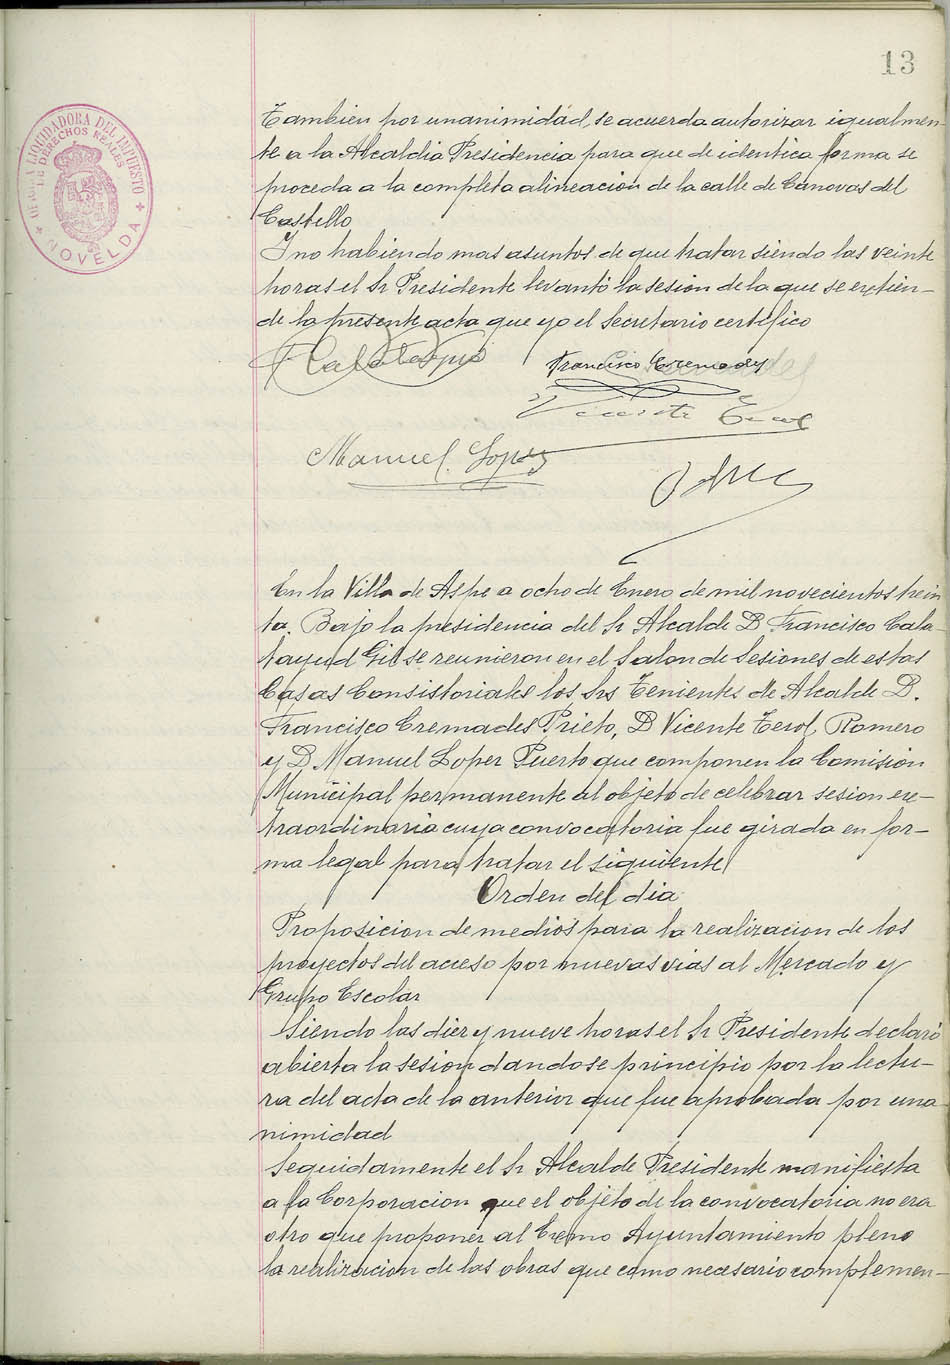 13
OFICINA LIQUIDADORA DEL IMPUESTO
DE DERECHOS REALES
NOVELDA
Tambien por unanimidad, se acuerda autorizar igualmen-
te a la Alcaldia Presidencia para que de identica forma se
proceda a la completa alineacion de la calle de Canovas del
Castello
Y no habiendo mas asuntos de que tratar siendo las veinte
horas el Sr Presidente levantó la sesion de la que se extien-
de la presente acta que yo el Secretario certifico
Francisco Cremades
Vicente Terol
Manuel Lopez
En la Villa de Aspe a ocho de Enero de mil novecientos trein
ta. Bajo la presidencia del Sr Alcalde D. Francisco Cala-
tayud Gil se reunieron en el Salon de Sesiones de estas
Casas Consistoriales los Srs Tenientes de Alcalde D.
Francisco Cremades Prieto, D Vicente Terol Romero
y D Manuel Lopez Puerto que componen la Comisión
Municipal permanente al objeto de celebrar sesion ex-
traordinaria cuya convocatoria fue girada en for-
ma legal para tratar el siguiente
Orden del dia
Proposicion de medios para la realizacion de los
proyectos del acceso por nuevas vias al Mercado y
Grupo Escolar
Siendo las diez y nueve horas el Sr Presidente declaró
abierta la sesion dandose principio por la lectu-
ra del acta de la anterior que fue aprobada por una
nimidad
Seguidamente el Sr Alcalde Presidente manifiesta
a la Corporacion que el objeto de la convocatoria no era
otro que proponer al Excmo Ayuntamiento pleno
la realizacion de las obras que como necesario complemen-